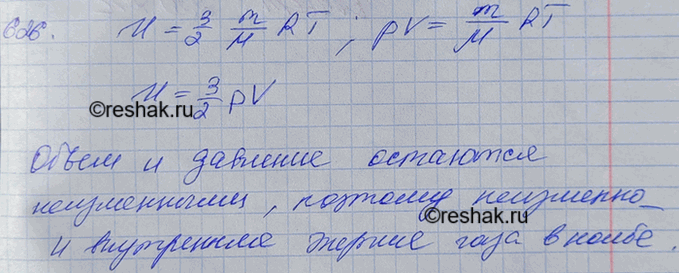 626. U = 3/2 m/M RT ; pV = m/M RT
U = 3/2 pV
©reshak.ru
Объем и давление остаются
неизменными, поэтому неизменно
и внутренняя энергия газа в колбе.
©reshak.ru